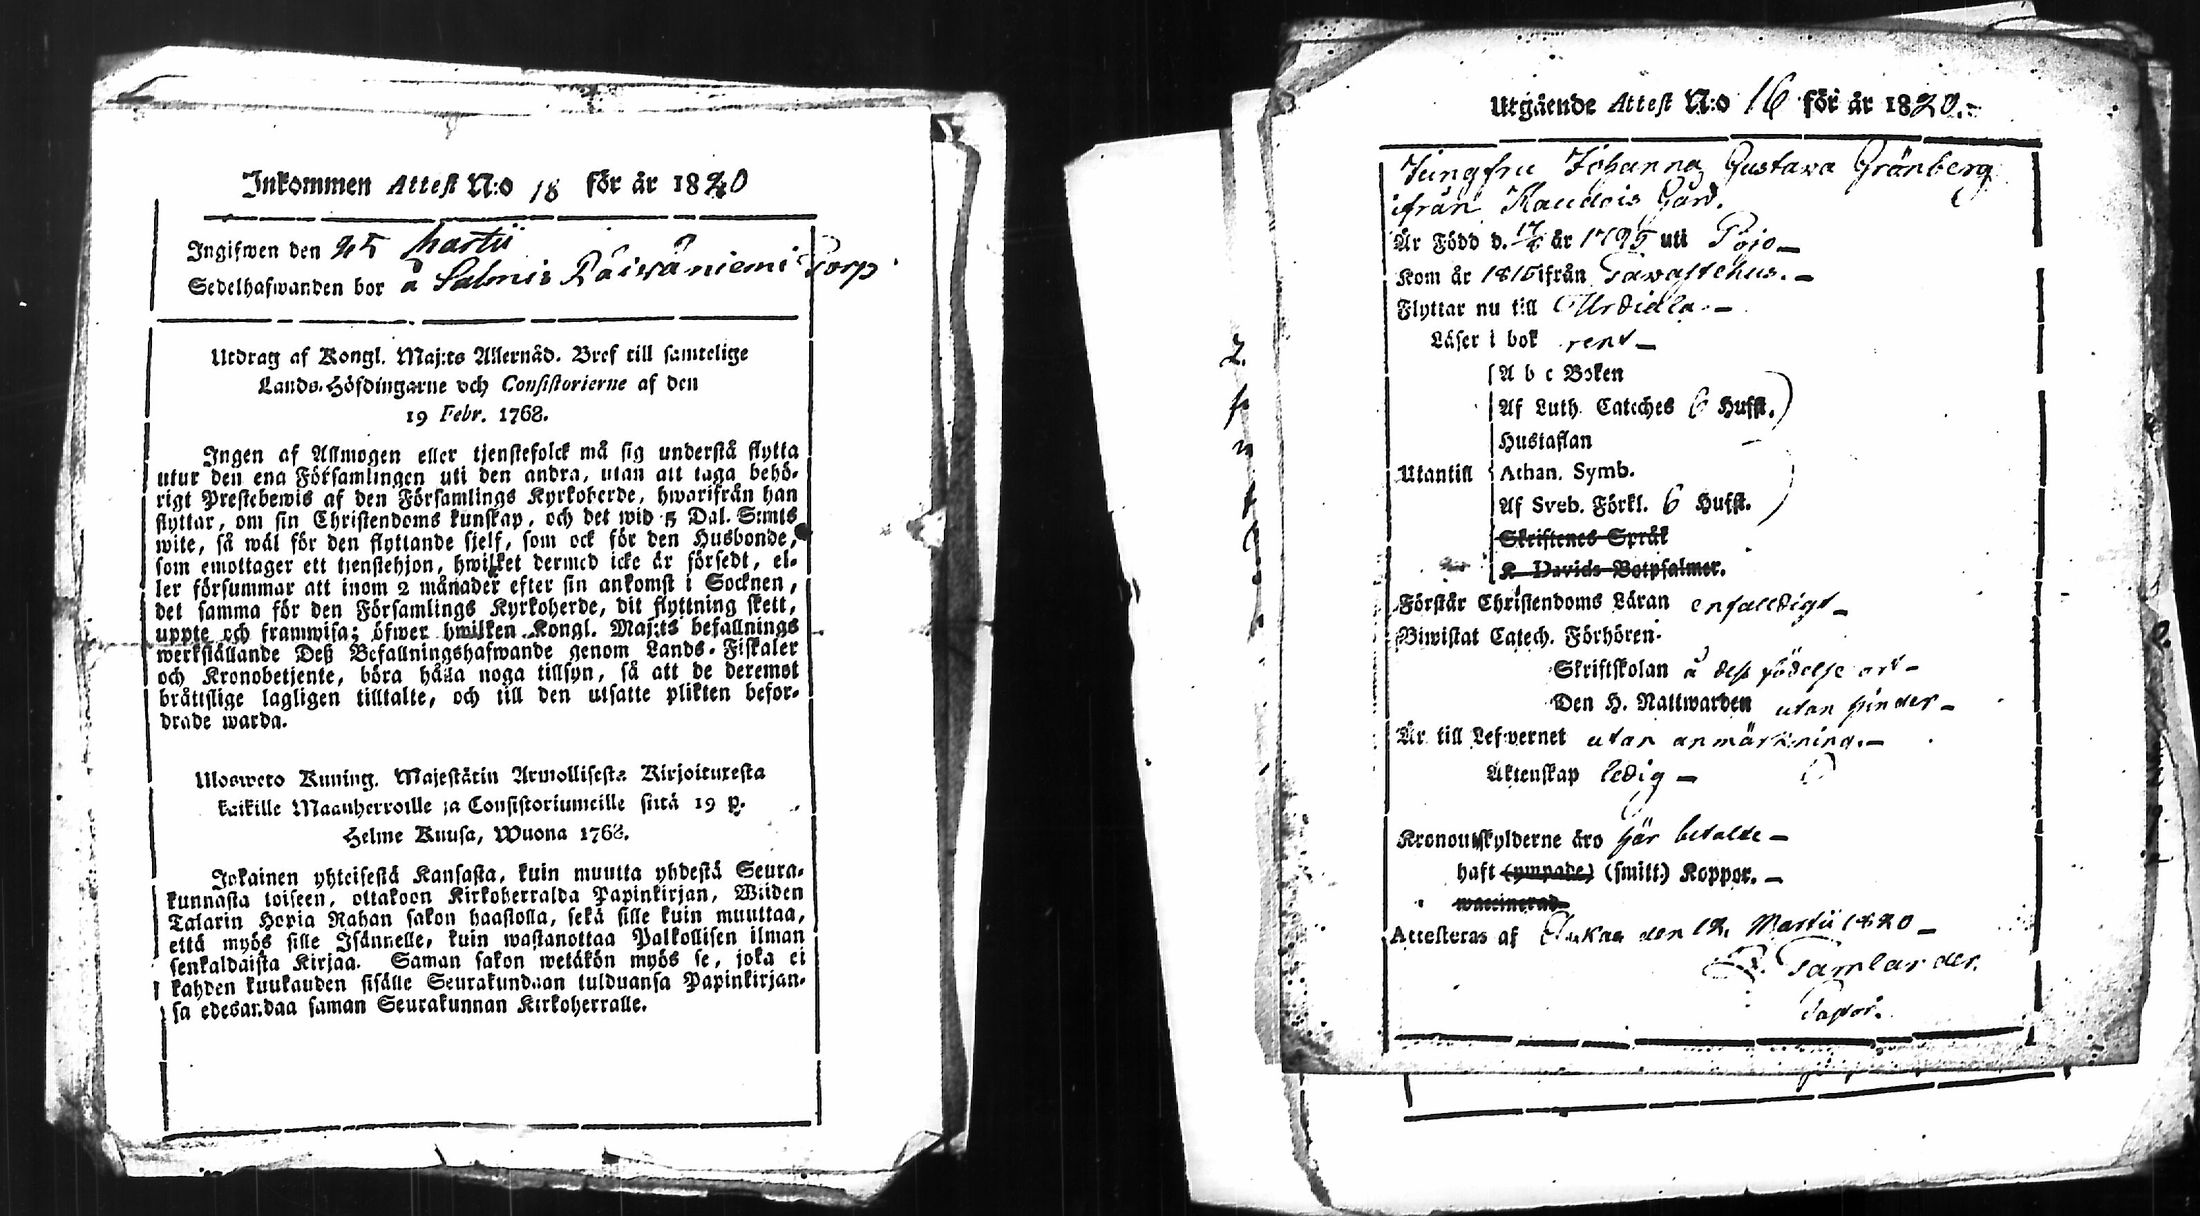 Inkommen Attest N:o 18 för år 1820
Ingifwen den 25 Martii
Sedelhafwanden bor å Salmis Päiwäniemi Torp
Utdrag af Kongl. Maj:ts Allernåd. Bref till samtelige
Lands-Höfdingarne och Consistorierne af den
19 Febr. 1768.
Ingen af Allmogen eller tjenstefolck må sig understå flytta
utur den ena Församlingen uti den andra, utan att taga behö-
rigt Prestebewis af den Församlings Kyrkoherde, hwarifrån han
flyttar, om sin Christendoms kunskap, och det wid 5 Dal. S:mts
wite, så wäl för den flyttande sjelf, som ock för den Husbonde,
som emottager ett tjenstehjon, hwilket dermed icke är försedt, el-
ler försummar att inom 2 månader efter sin ankomst i Socknen,
det samma för den Församlings Kyrkoherde, dit flyttning skett,
uppte och framwisa; öfwer hwilken Kongl. Maj:ts befallnings
werkställande Deß Befallningshafwande genom Lands-Fiskaler
och Kronobetjente, böra hålla noga tillsyn, så att de deremot
bråttslige lagligen tilltalte, och till den utsatte plikten befor-
drade warda.
Ulosweto Kuning. Majestätin Armollisesta Kirjoituxesta
kaikille Maanherroille ja Consistoriumeille siitä 19 p.
Helme Kuusa, Wuona 1768.
Jokainen yhteisestä Kansasta, kuin muutta yhdestä Seura-
kunnasta toiseen, ottakoon Kirkoherralda Papinkirjan, Wiiden
Talarin Hopia Rahan sakon haastolla, sekä sille kuin muuttaa,
että myös sille Isännelle, kuin wastanottaa Palkollisen ilman
senkaldaista Kirjaa. Saman sakon wetäkön myös se, joka ei
kahden kuukauden sisälle Seurakundaan tulduansa Papinkirjan-
sa edesandaa saman Seurakunnan Kirkoherralle.
Utgående Attest N:o 16 för år 1820.-
Jungfru Johanna Gustava Grönberg
ifrån Raudois Gård.
Är Född d. 17/4 år 1795 uti Pojo
Kom år 1816 ifrån Tavastehus.
Flyttar nu till Urdiala
Läser i bok rent
A b c Boken
Af Luth. Cateches 6 Hufst.
Hustaflan
Utantill Athan. Symb.
Af Sveb. Förkl. 6 Hufst.
Skriftenes Språk
K Davids Botpsalmer.
Förstår Christendoms Läran enfaldigt
Biwistat Catech. Förhören
Skriftskolan å dess födelse ort
Den H. Nattwarden utan hinder
Är till Lefwernet utan anmärkning.
Äktenskap ledig
Kronoutskylderne äro här betalde
haft (ympade) (smitt.) Koppor.
waccinerad
Attesteras af den 12 Martii 1820
Tamlander.
Pastor.